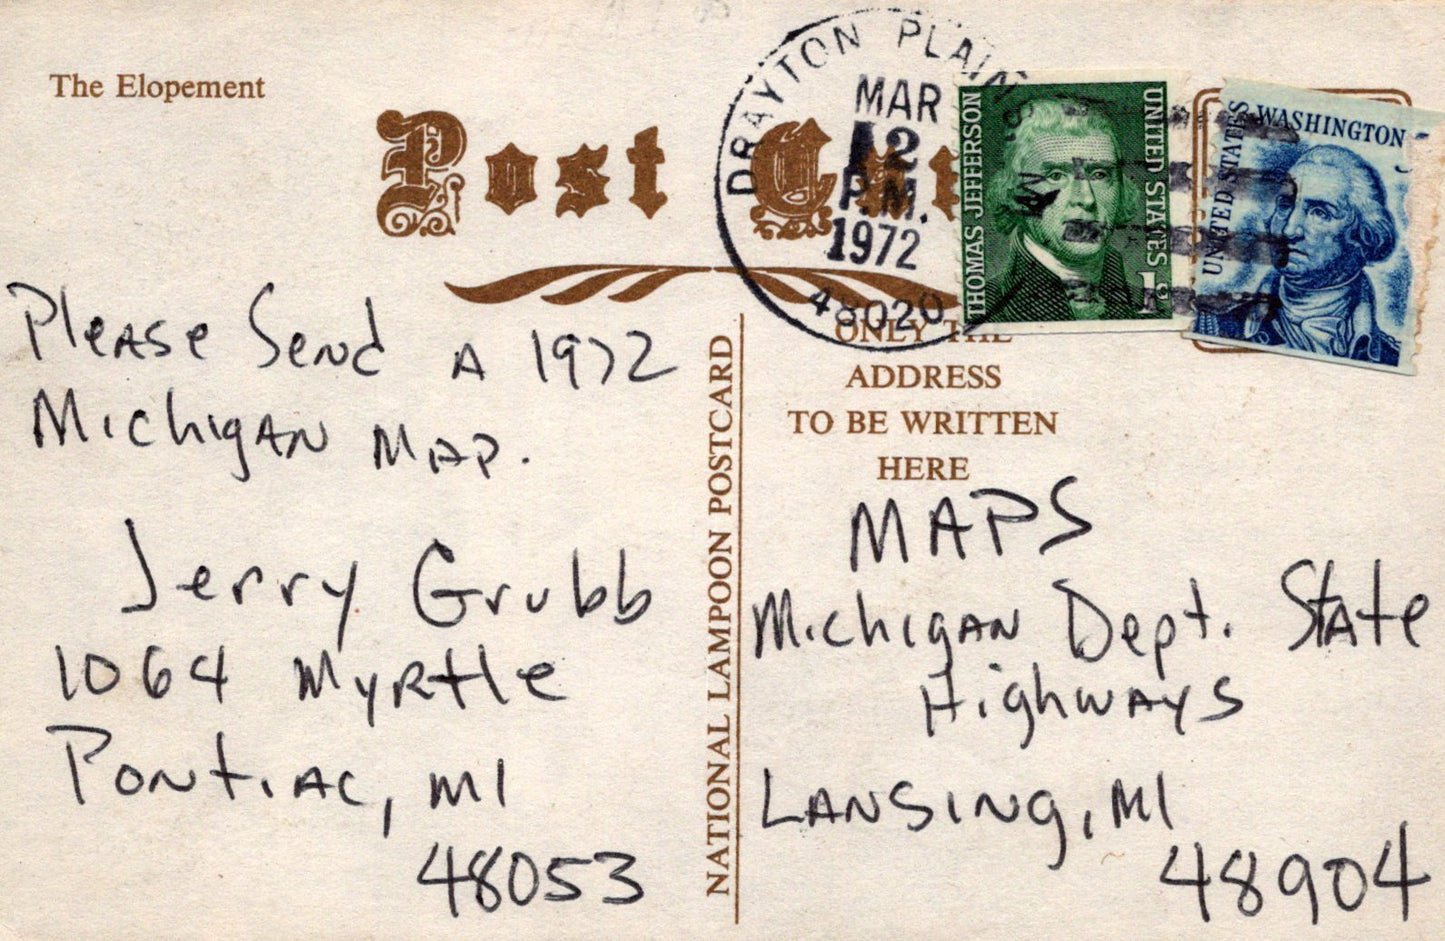 The Elopement
Post
DRAYTON PLAINS, MI
MAR
2
P.M.
1972
48020
THOMAS JEFFERSON
UNITED STATES
1¢
UNITED STATES
WASHINGTON
ONLY THE
ADDRESS
TO BE WRITTEN
HERE
NATIONAL LAMPOON POSTCARD
Please Send A 1972
Michigan Map.
Jerry Grubb
1064 Myrtle
Pontiac, MI
48053
MAPS
Michigan Dept. State
Highways
Lansing, MI
48904